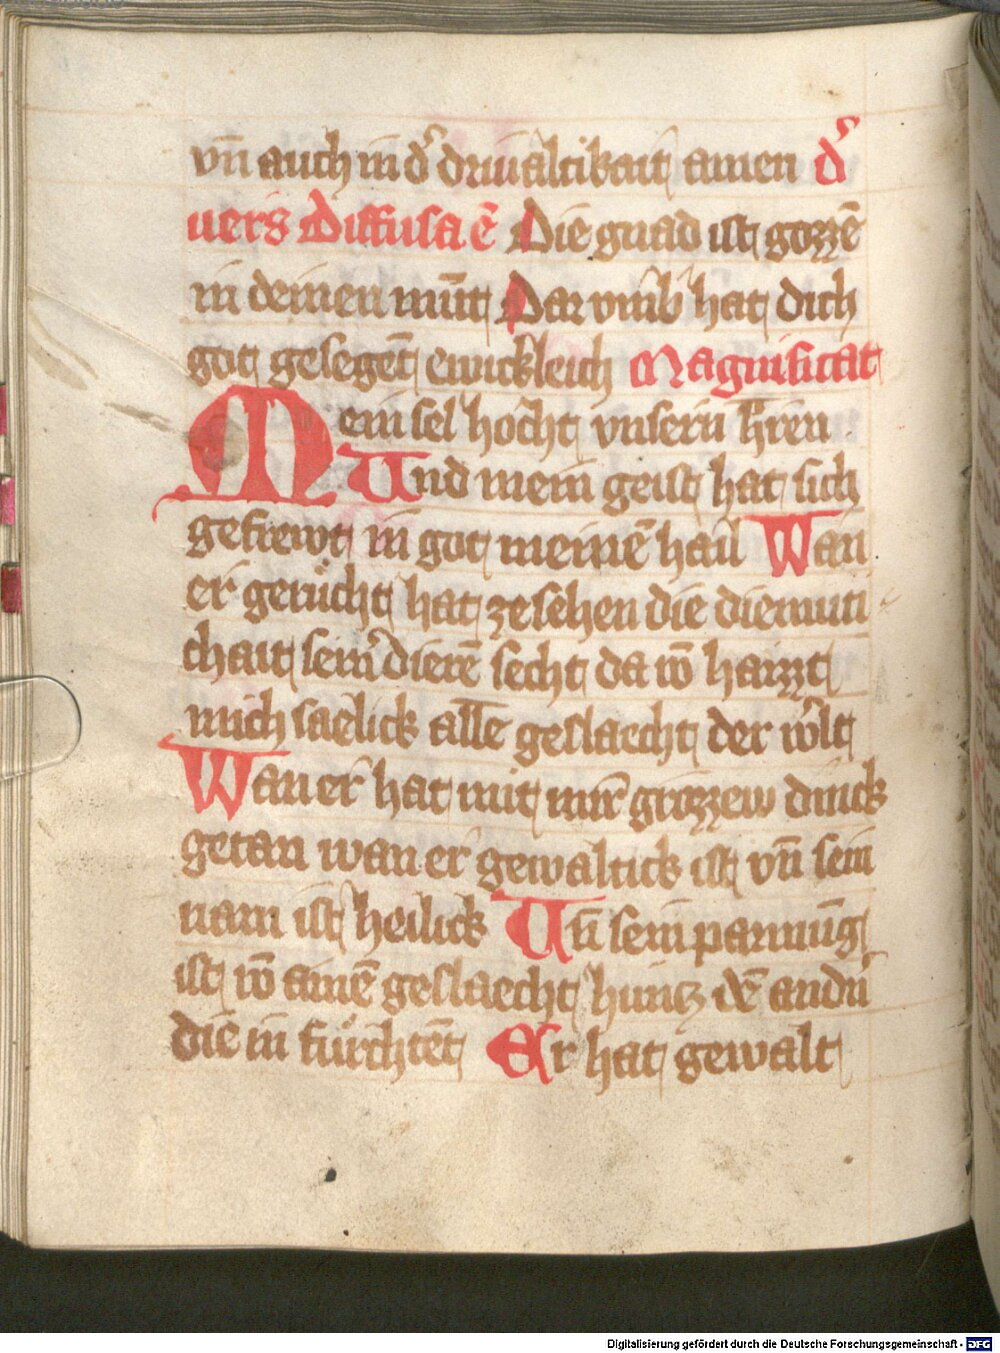 vn̄ auch in d̾ driualtikait amen d̾
uers Diffusa ē Die gnad ist gozzē
in deinen mūt Dar vmb hat dich
got gesegēt ewickleich Magnificat
Mein sel hocht vnsern h̄ren
Und mein geist hat sich
gefrewt in got meinē hail Wan
er gerücht hat ze sehen die diemuti
chait sein̾ dierē secht da vō haizzt
mich saelick alle geslaecht der w̾lt
Wan er hat mit mir grozzew dinck
getan wan er gewaltick ist vn̄ sein
nam ist heilick Un̄ sein parmūg
ist vō ainē geslaecht huntz dē andn̾
die in fürchtēt Er hat gewalt
Digitalisierung gefördert durch die Deutsche Forschungsgemeinschaft - DFG